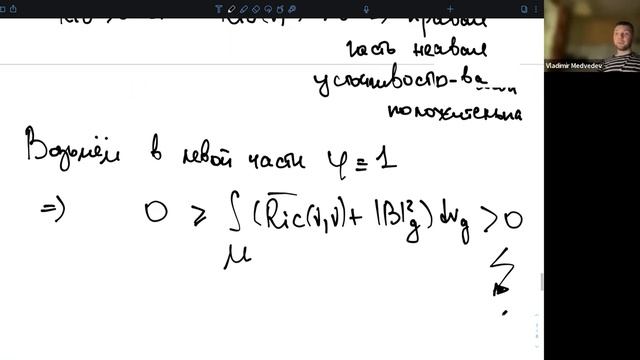 Ric(ν,ν) => правая
часть нерав
устойчивости-ва
положительна
Возьмём в левой части φ ≡ 1
=> 0 ≥ ∫ (Ric(ν,ν) + |B|²_g) dv_g > 0
M
Vladimir Medvedev